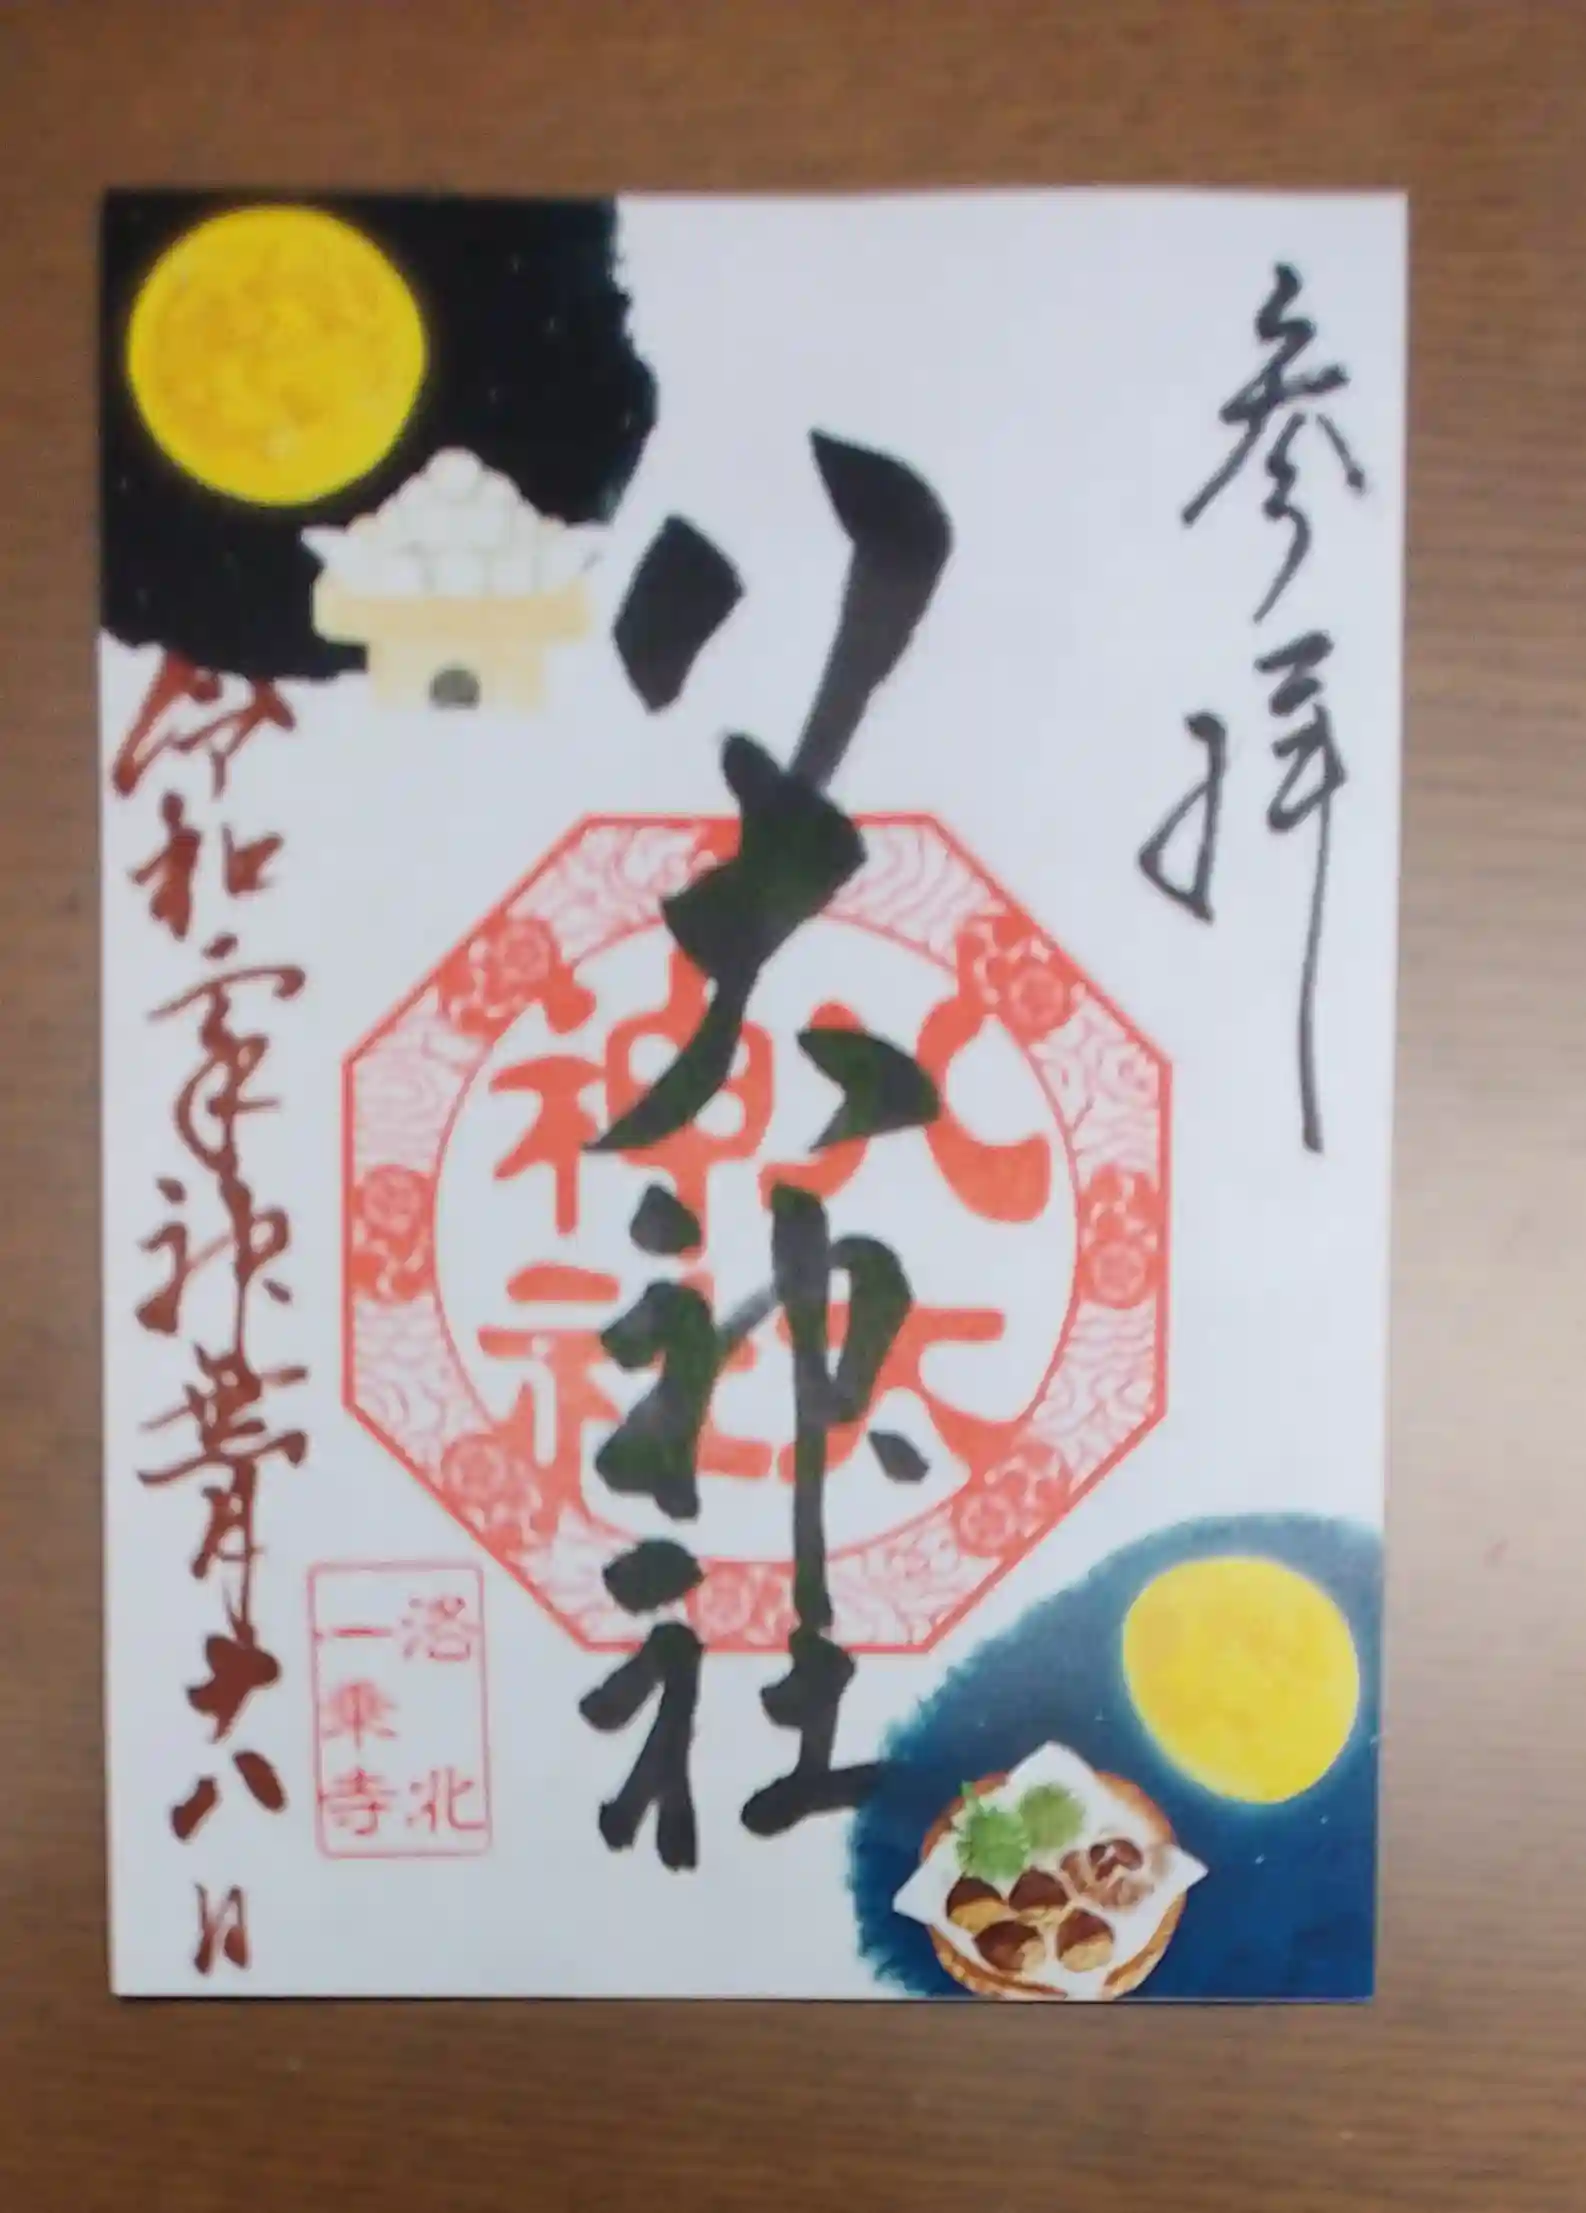 参拝
八大神社
八大
神社
令和年神無月十八日
洛北
一乗寺